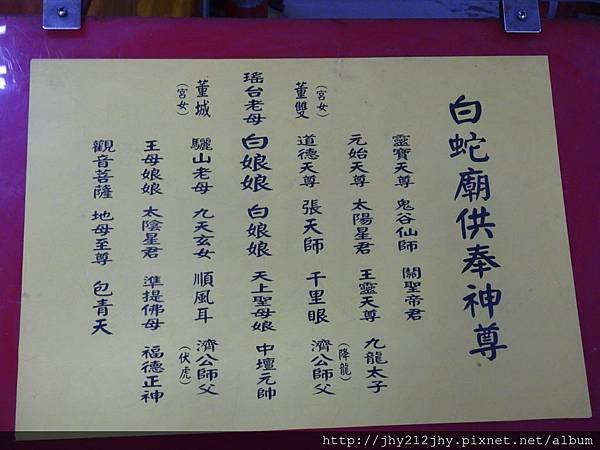 白蛇廟供奉神尊
靈寶天尊 鬼谷仙師 關聖帝君
元始天尊 太陽星君 王靈天尊 九龍太子
(宮女) 董雙 道德天尊 張天師 千里眼 (降龍) 濟公師父
瑤台老母 白娘娘 白娘娘 天上聖母娘 中壇元帥
(宮女) 董城 驪山老母 九天玄女 順風耳 (伏虎) 濟公師父
王母娘娘 太陰星君 準提佛母 福德正神
觀音菩薩 地母至尊 包青天
http://jhy212jhy.pixnet.net/album